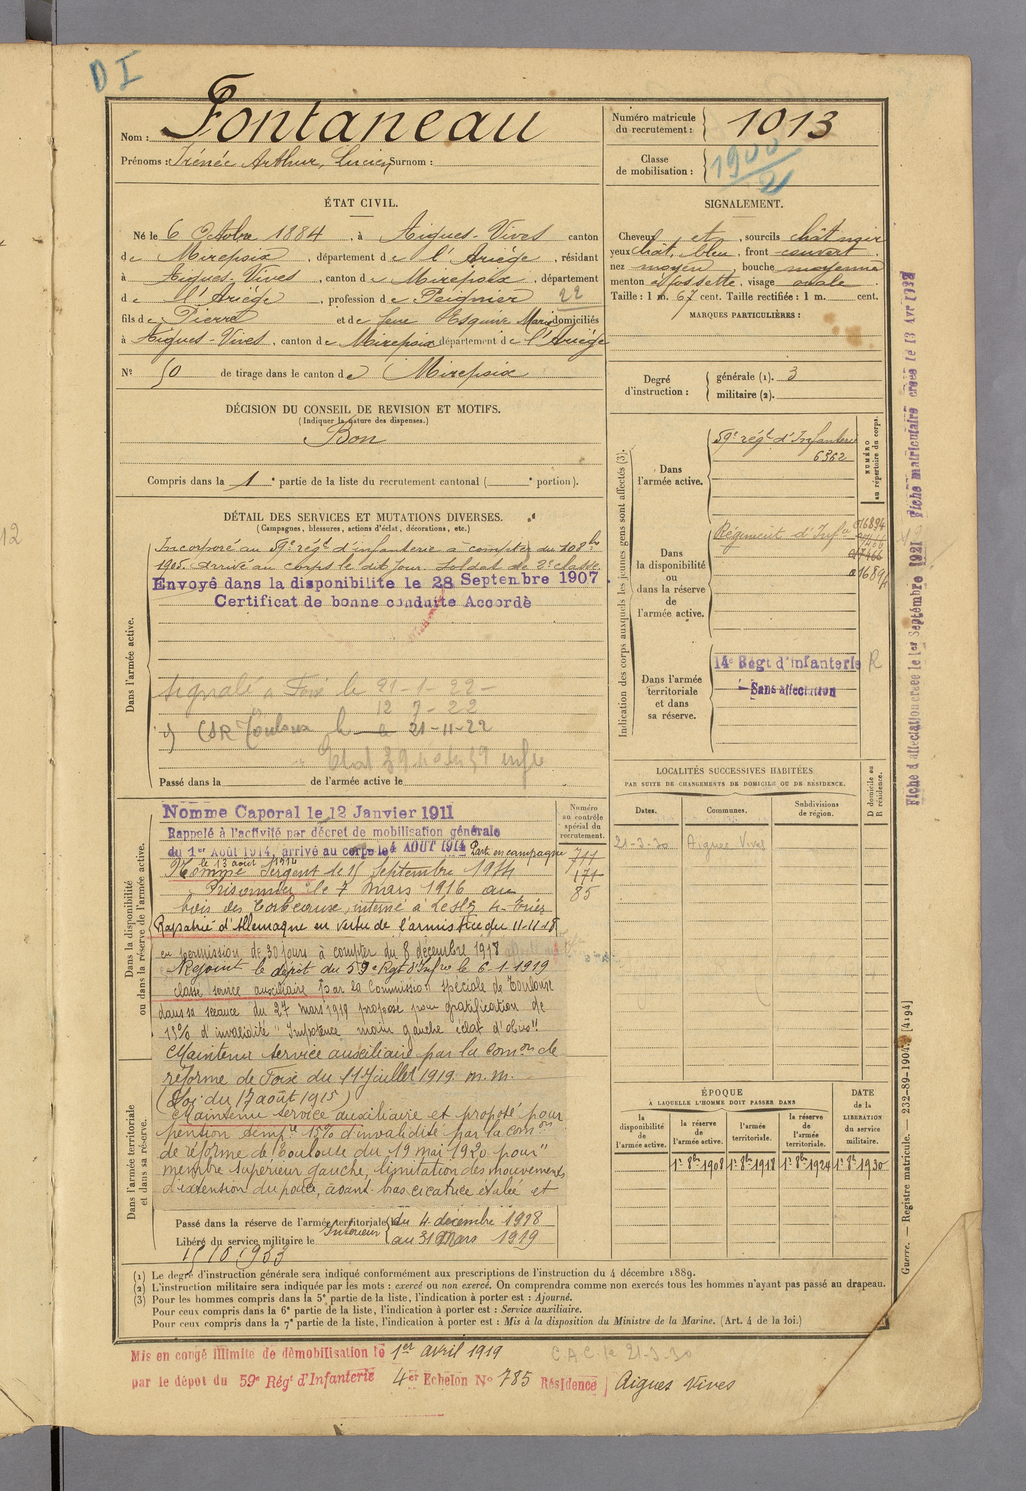 D I
Nom : Fontaneau
Prénoms : Irénée Arthur, Lucien Surnom :
Numéro matricule du recrutement : 1013
Classe de mobilisation : 1900/2
ÉTAT CIVIL.
Né le 6 Octobre 1884, à Aigues-Vives canton
de Mirepoix, département de l'Ariège, résidant
à Aigues-Vives, canton de Mirepoix, département
de l'Ariège, profession de Peignier 22
fils de Pierre et de feue Esquire Marie domiciliés
à Aigues-Vives, canton de Mirepoix département de l'Ariège
No 50 de tirage dans le canton de Mirepoix
SIGNALEMENT.
Cheveux et, sourcils chât noir
yeux chât. bleu, front couvert.
nez moyen, bouche moyenne
menton à fossette, visage ovale.
Taille : 1 m. 67 cent. Taille rectifiée : 1 m. cent.
MARQUES PARTICULIÈRES :
Degré d'instruction : générale (1). 3
militaire (2).
DÉCISION DU CONSEIL DE REVISION ET MOTIFS.
(Indiquer la nature des dispenses.)
Bon
Compris dans la 1e partie de la liste du recrutement cantonal ( e portion).
DÉTAIL DES SERVICES ET MUTATIONS DIVERSES.
(Campagnes, blessures, actions d'éclat, décorations, etc.)
Dans l'armée active.
Incorporé au 59e régt d'infanterie à compter du 10 8bre
1905. Arrivé au corps le dit jour. Soldat de 2e classe.
Envoyé dans la disponibilité le 28 Septembre 1907.
Certificat de bonne conduite Accordé
Signalé a Foix le 21-1-22-
12 7-22
CSR Toulouse le 21-11-22
Passé dans la de l'armée active le
Dans la disponibilité ou dans la réserve de l'armée active.
Nommé Caporal le 12 Janvier 1911
Rappelé à l'activité par décret de mobilisation générale
du 1er Août 1914, arrivé au corps le 4 AOUT 1914 Parti en campagne
le 13 août 1914
Nommé Sergent le 15 Septembre 1914
Prisonnier le 7 mars 1916 au
bois des Corbeaux, interné à
Rapatrié d'Allemagne en vertu de l'armistice du 11-11-18
en permission de 30 jours à compter du 8 décembre 1918
Rejoint le dépôt du 59e Regt d'Infie le 6-1-1919
Classé service auxiliaire par la Commission spéciale de Toulouse
dans sa séance du 27 mars 1919 proposé pour gratification de
15% d'invalidité "Impotence main gauche éclat d'obus"
Maintenu service auxiliaire par la comon de
réforme de Foix du 11 Juillet 1919. m.m.
(Loi du 17 août 1915)
Maintenu service auxiliaire et proposé pour
pension temp.re 15% d'invalidité par la comon
de réforme de Toulouse du 19 mai 1920 pour"
membre supérieur gauche, limitation des mouvements
d'extension du pouce, avant-bras cicatrice étalée et
Numéro au contrôle spécial du recrutement.
711
171
85
Dans l'armée territoriale et dans sa réserve.
Passé dans la réserve de l'armée territoriale
Intérieur du 4 décembre 1918
au 31 Mars 1919
Libéré du service militaire le
15/10/1933
Indication des corps auxquels les jeunes gens sont affectés (3).
Dans l'armée active.
59e régt d'Infanterie
6362
NUMÉRO au répertoire du corps.
Dans la disponibilité ou dans la réserve de l'armée active.
Régiment d'Infie
Dans l'armée territoriale et dans sa réserve.
14e Régt d'infanterie R
Sans affectation
LOCALITÉS SUCCESSIVES HABITÉES
PAR SUITE DE CHANGEMENTS DE DOMICILE OU DE RÉSIDENCE.
Dates. Communes. Subdivisions de région. D domicile ou R résidence.
21-3-30 Aigues Vives
ÉPOQUE
À LAQUELLE L'HOMME DOIT PASSER DANS
la disponibilité de l'armée active. la réserve de l'armée active. l'armée territoriale. la réserve de l'armée territoriale. DATE de la LIBÉRATION du service militaire.
1er 8bre 1908 1er 8bre 1918 1er 8bre 1924 1er 8bre 1930
(1) Le degré d'instruction générale sera indiqué conformément aux prescriptions de l'instruction du 4 décembre 1889.
(2) L'instruction militaire sera indiquée par les mots : exercé ou non exercé. On comprendra comme non exercés tous les hommes n'ayant pas passé au drapeau.
(3) Pour les hommes compris dans la 5e partie de la liste, l'indication à porter est : Ajourné.
Pour ceux compris dans la 6e partie de la liste, l'indication à porter est : Service auxiliaire.
Pour ceux compris dans la 7e partie de la liste, l'indication à porter est : Mis à la disposition du Ministre de la Marine. (Art. 4 de la loi.)
Mis en congé illimité de démobilisation le 1er avril 1919 C.A.C. le 21-3-30
par le dépôt du 59e Régt d'Infanterie 4er Echelon No 785 Résidence Aigues Vives
Fiche d'affectation créée le 1er Septembre 1921 Fiche matriculaire créée le 13 Avr 1928
Guerre. — Registre matricule. — 232-89-1904. [4194]
12